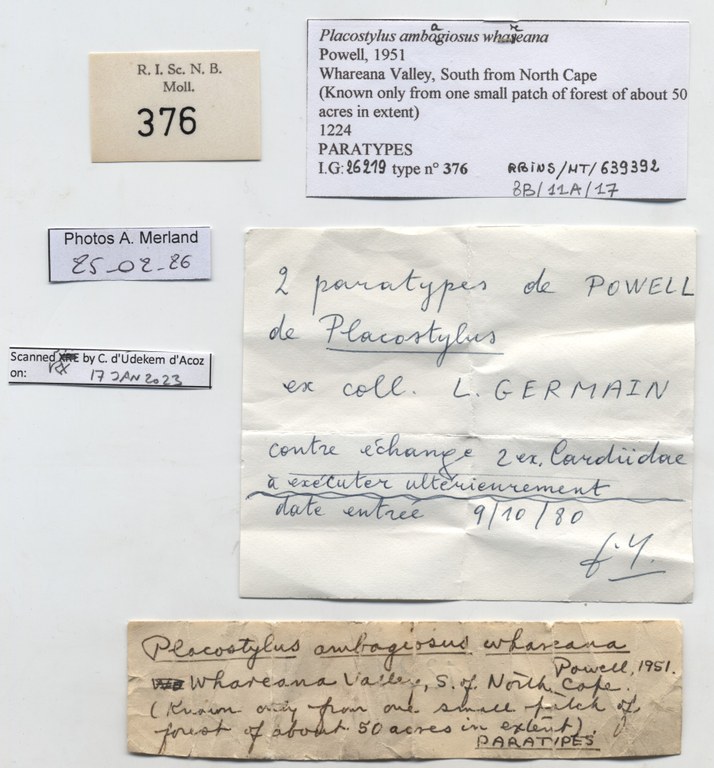 R. I. Sc. N. B.
Moll.
376
Placostylus ambagiosus whareana
Powell, 1951
Whareana Valley, South from North Cape
(Known only from one small patch of forest of about 50
acres in extent)
1224
PARATYPES
I.G: 26219 type n° 376 RBINS/MT/639392
8B/11A/17
Photos A. Merland
25_02_26
Scanned by C. d'Udekem d'Acoz
RX
on: 17 JAN 2023
2 paratypes de POWELL
de Placostylus
ex coll. L. GERMAIN
contre échange 2 ex. Cardiidae
à exécuter ultérieurement
date entrée 9/10/80
Placostylus ambagiosus whareana
Powell, 1951.
Whareana Valley, S. of North Cape.
(Known only from one small patch of
forest of about 50 acres in extent).
PARATYPES